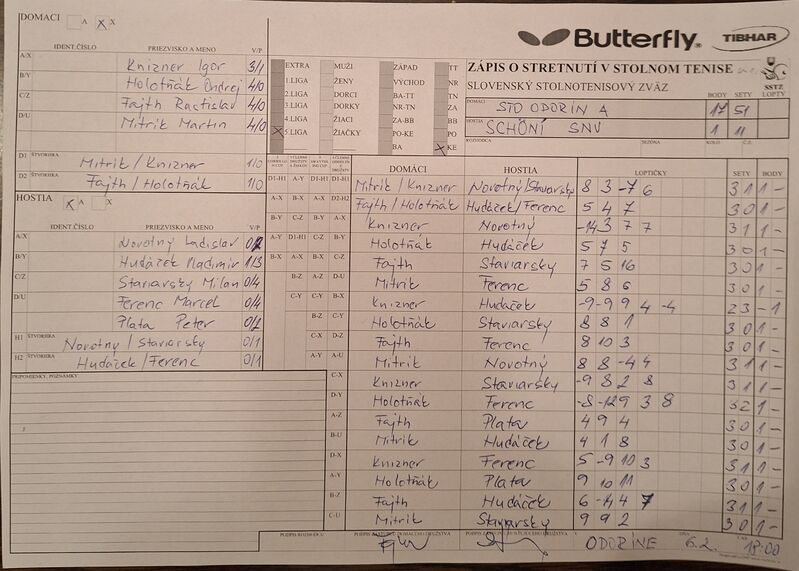 DOMÁCI A X
Butterfly® TIBHAR
IDENT.ČÍSLO PRIEZVISKO A MENO V/P
A/X Knizner Igor 3/1
B/Y Holotňák Ondrej 4/0
C/Z Fajth Rastislav 4/0
D/U Mitrik Martin 4/0
D1 ŠTVORHRA Mitrik/Knizner 1/0
D2 ŠTVORHRA Fajth/Holotňák 1/0
EXTRA MUŽI ZÁPAD TT
1.LIGA ŽENY VÝCHOD NR
2.LIGA DORCI BA-TT TN
3.LIGA DORKY NR-TN ZA
4.LIGA ŽIACI ZA-BB BB
5.LIGA ŽIAČKY PO-KE PO
BA KE
ZÁPIS O STRETNUTÍ V STOLNOM TENISE
SLOVENSKÝ STOLNOTENISOVÝ ZVÄZ
SSTZ
BODY SETY LOPTY
DOMÁCI STO ODORIN A 17 51
HOSTIA SCHÖNI SNV 1 11
ROZHODCA SEZÓNA Č.Z.
HOSTIA A X
IDENT.ČÍSLO PRIEZVISKO A MENO V/P
A/X Novotný Ladislav
B/Y Hudáček Vladimir 1/3
C/Z Staviarsky Milan 0/4
D/U Ferenc Marcel 0/4
Plata Peter
H1 ŠTVORHRA Novotný/Staviarsky 0/1
H2 ŠTVORHRA Hudáček/Ferenc 0/1
PRIPOMIENKY, POZNÁMKY
DOMÁCI HOSTIA LOPTIČKY SETY BODY
Mitrik/Knizner Novotný/Staviarsky 8 3 -7 6 3 1 1 -
Fajth/Holotňák Hudáček/Ferenc 5 4 7 3 0 1 -
Knizner Novotný -14 3 7 7 3 1 1 -
Holotňák Hudáček 5 7 5 3 0 1 -
Fajth Staviarsky 7 5 16 3 0 1 -
Mitrik Ferenc 5 8 6 3 0 1 -
Knizner Hudáček -9 -9 9 4 -4 2 3 - 1
Holotňák Staviarsky 8 8 1 3 0 1 -
Fajth Ferenc 8 10 3 3 0 1 -
Mitrik Novotný 8 8 -4 4 3 1 1 -
Knizner Staviarsky -9 8 2 8 3 1 1 -
Holotňák Ferenc -8 -12 9 3 8 3 2 1 -
Fajth Plata 4 9 4 3 0 1 -
Mitrik Hudáček 4 1 8 3 0 1 -
Knizner Ferenc 5 -9 10 3 3 1 1 -
Holotňák Plata 9 10 11 3 0 1 -
Fajth Hudáček 3 1 1 -
Mitrik Staviarsky 9 9 2 3 0 1 -
PODPIS ROZHODCU
ODORINE 6.2. 18:00